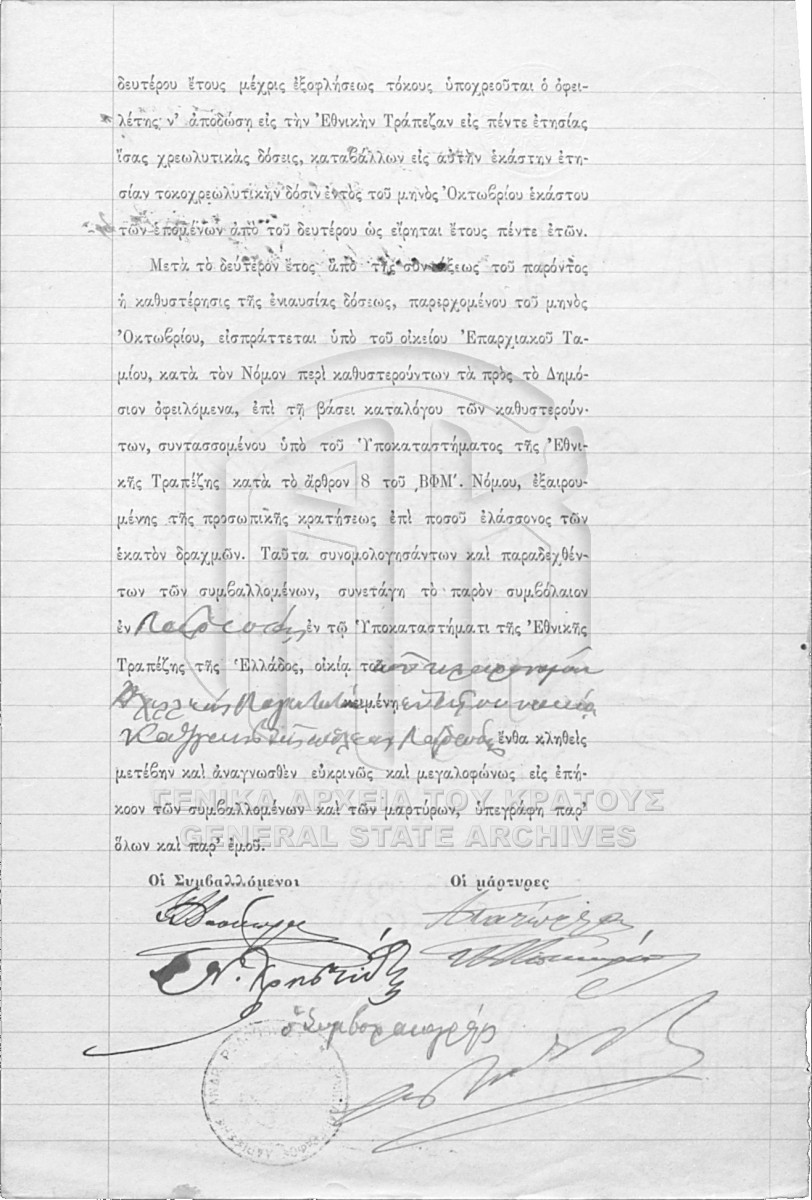 δευτέρου ἔτους μέχρις ἐξοφλήσεως τόκους ὑποχρεοῦται ὁ ὀφει-
λέτης ν' ἀποδώσῃ εἰς τὴν Ἐθνικὴν Τράπεζαν εἰς πέντε ἐτησίας
ἴσας χρεωλυτικὰς δόσεις, καταβάλλων εἰς αὐτὴν ἑκάστην ἐτη-
σίαν τοκοχρεωλυτικὴν δόσιν ἐντὸς τοῦ μηνὸς Ὀκτωβρίου ἑκάστου
τῶν ἑπομένων ἀπὸ τοῦ δευτέρου ὡς εἴρηται ἔτους πέντε ἐτῶν.
Μετὰ τὸ δεύτερον ἔτος ἀπὸ τῆς συντάξεως τοῦ παρόντος
ἡ καθυστέρησις τῆς ἐνιαυσίας δόσεως, παρερχομένου τοῦ μηνὸς
Ὀκτωβρίου, εἰσπράττεται ὑπὸ τοῦ οἰκείου Ἐπαρχιακοῦ Τα-
μίου, κατὰ τὸν Νόμον περὶ καθυστερούντων τὰ πρὸς τὸ Δημό-
σιον ὀφειλόμενα, ἐπὶ τῇ βάσει καταλόγου τῶν καθυστερούν-
των, συντασσομένου ὑπὸ τοῦ Ὑποκαταστήματος τῆς Ἐθνι-
κῆς Τραπέζης κατὰ τὸ ἄρθρον 8 τοῦ ͵ΒΦΜʹ. Νόμου, ἐξαιρου-
μένης τῆς προσωπικῆς κρατήσεως ἐπὶ ποσοῦ ἐλάσσονος τῶν
ἑκατὸν δραχμῶν. Ταῦτα συνομολογησάντων καὶ παραδεχθέν-
των τῶν συμβαλλομένων, συνετάγη τὸ παρὸν συμβόλαιον
ἐν ἐν τῷ Ὑποκαταστήματι τῆς Ἐθνικῆς
Τραπέζης τῆς Ἑλλάδος, οἰκίᾳ τῶν κληρονόμων
κειμένῃ
πόλεως ἔνθα κληθεὶς
μετέβην καὶ ἀναγνωσθὲν εὐκρινῶς καὶ μεγαλοφώνως εἰς ἐπή-
κοον τῶν συμβαλλομένων καὶ τῶν μαρτύρων, ὑπεγράφη παρ'
ὅλων καὶ παρ' ἐμοῦ.
ΓΕΝΙΚΑ ΑΡΧΕΙΑ ΤΟΥ ΚΡΑΤΟΥΣ
GENERAL STATE ARCHIVES
Οἱ Συμβαλλόμενοι Οἱ μάρτυρες
ὁ Συμβολαιογράφος